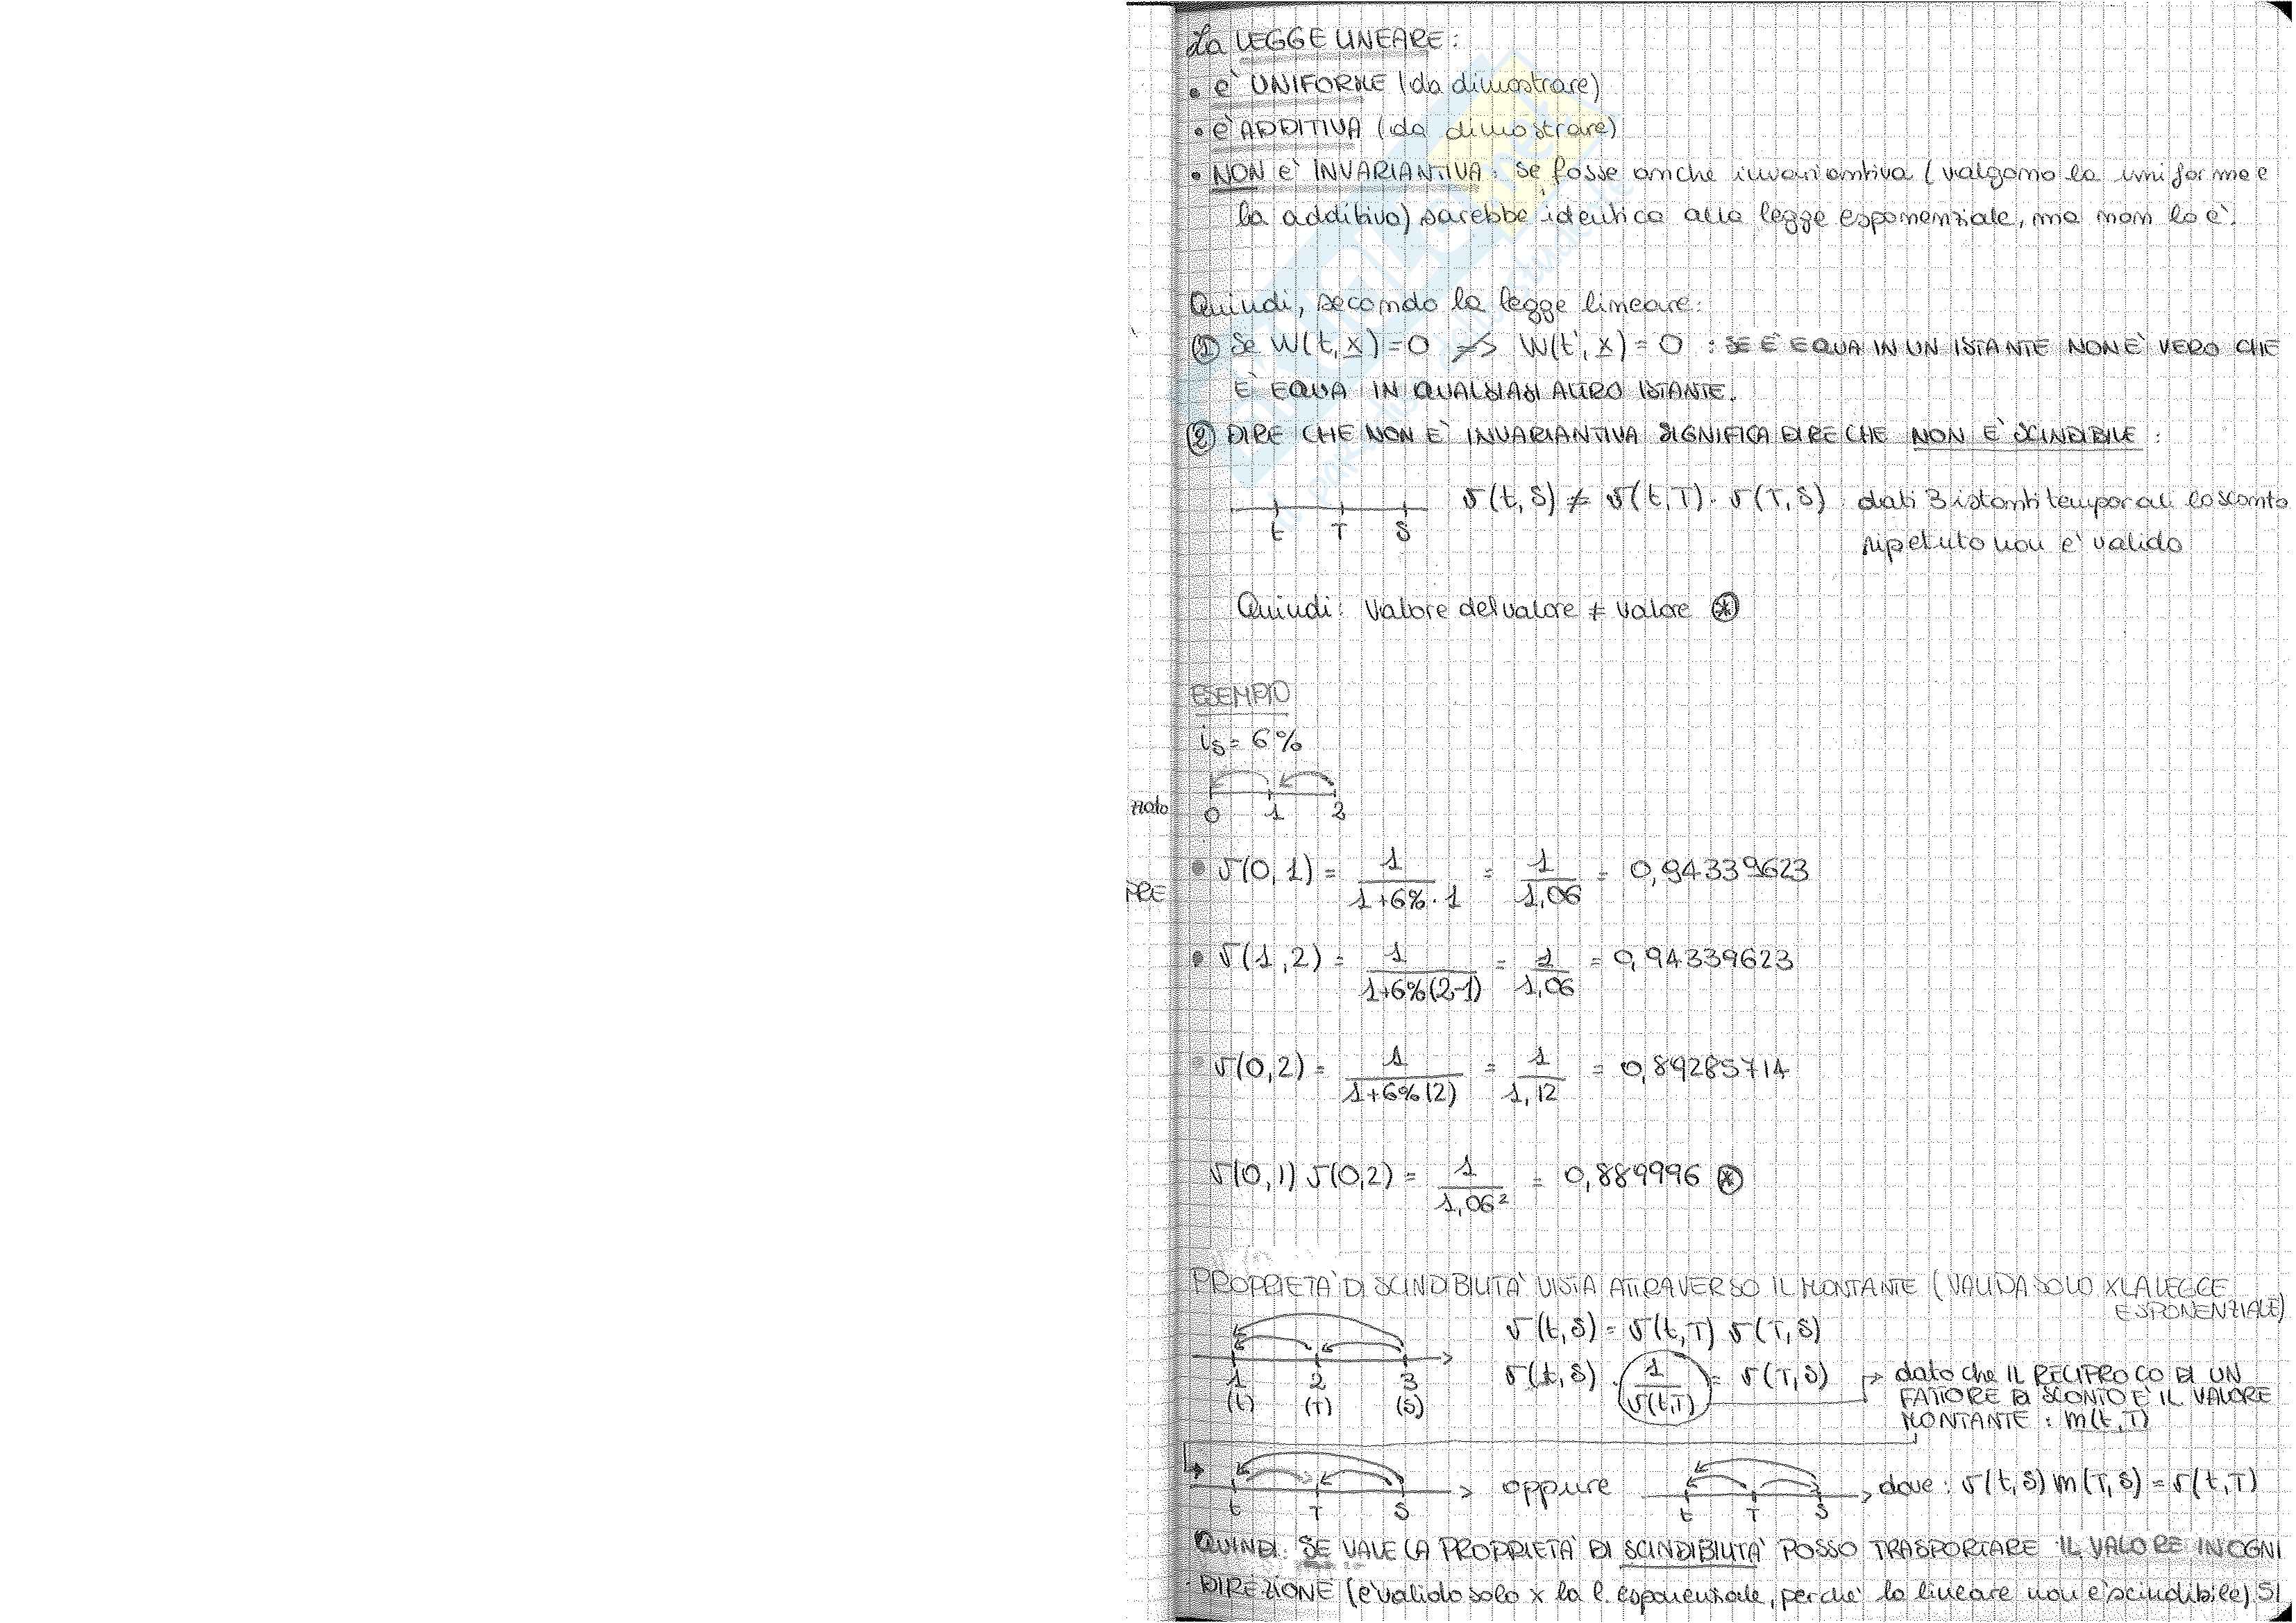 La LEGGE LINEARE:
• è UNIFORME (da dimostrare)
• è ADDITIVA (da dimostrare)
• NON è INVARIANTIVA: se fosse anche invariantiva (valgono la uniforme e
la additiva) sarebbe identica alla legge esponenziale, ma non lo è.
Quindi, secondo la legge lineare:
① Se W(t, x) = 0 ⇏ W(t', x) = 0 : SE È EQUA IN UN ISTANTE NON È VERO CHE
È EQUA IN QUALSIASI ALTRO ISTANTE.
② DIRE CHE NON È INVARIANTIVA SIGNIFICA DIRE CHE NON È SCINDIBILE :
v(t, s) ≠ v(t, T) · v(T, s) dati 3 istanti temporali lo sconto
t T s
ripetuto non è valido
Quindi: Valore del valore ≠ valore ⊛
ESEMPIO
is = 6%
0 1 2
• v(0, 1) = 1/(1+6%·1) = 1/1,06 = 0,94339623
PRE
• v(1, 2) = 1/(1+6%(2-1)) = 1/1,06 = 0,94339623
• v(0, 2) = 1/(1+6%(2)) = 1/1,12 = 0,89285714
v(0, 1) v(0, 2) = 1/1,06² = 0,889996 ⊛
PROPRIETÀ DI SCINDIBILITÀ VISTA ATTRAVERSO IL MONTANTE (VALIDA SOLO X LA LEGGE
ESPONENZIALE)
v(t, s) = v(t, T) v(T, s)
v(t, s) · 1/v(t,T) = v(T, s) → dato che IL RECIPROCO DI UN
1 2 3
(t) (T) (s)
FATTORE DI SCONTO È IL VALORE
MONTANTE : m(t, T)
oppure dove : v(t, s) m(T, s) = v(t, T)
t T s t T s
QUINDI: SE VALE LA PROPRIETÀ DI SCINDIBILITÀ POSSO TRASPORTARE IL VALORE IN OGNI
DIREZIONE (è valido solo x la l. esponenziale, perchè la lineare non è scindibile) SI